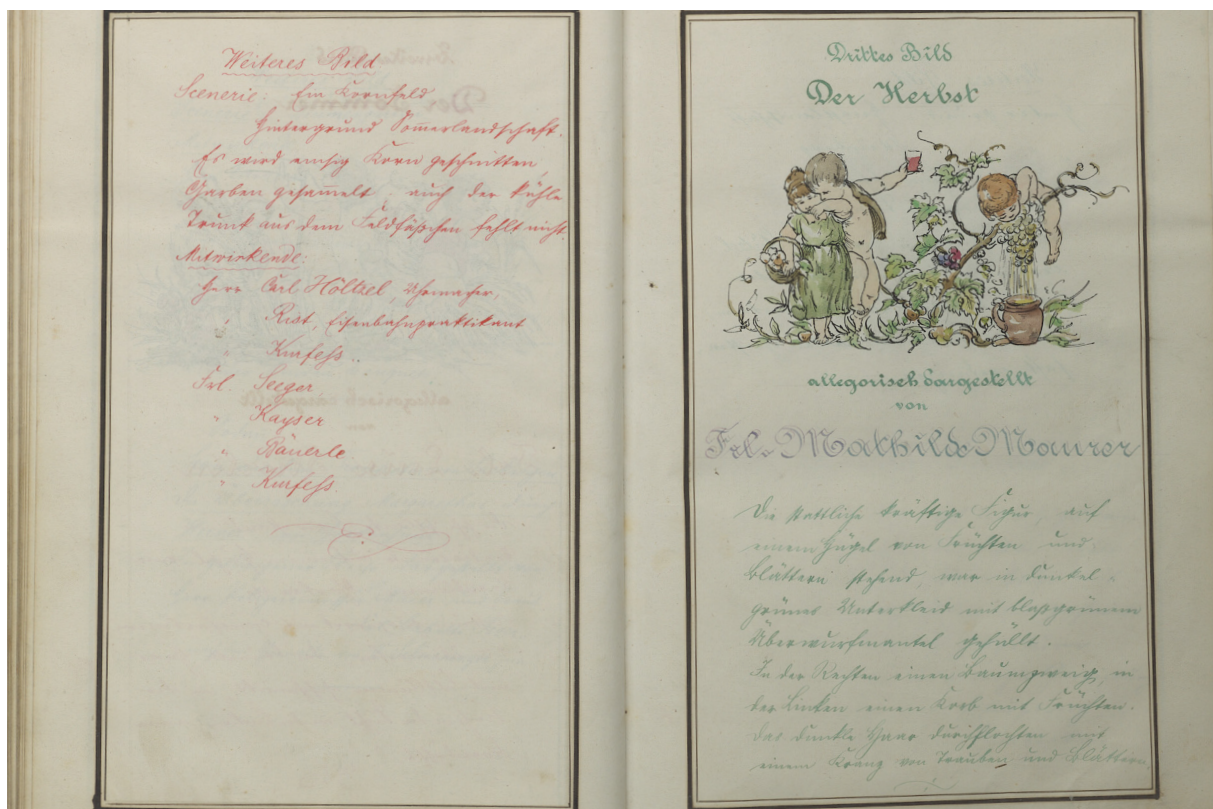 Weiteres Bild
Scenerie: Ein Kornfeld
Hintergrund Sommerlandschaft.
Es wird emsig Korn geschnitten
Garben gesammelt, auch der kühle
Trunk aus dem Feldfäßchen fehlt nicht.
Mitwirkende:
Herr Carl Höltzel, Uhrmacher,
" Rist, Eisenbahnpraktikant
" Kurfess
Frl. Seeger
" Kayser
" Bäuerle
" Kurfess.
Drittes Bild
Der Herbst
allegorisch dargestellt
von
Frl. Mathilde Maurer
Die stattliche kräftige Figur, auf
einem Hügel von Früchten und
Blättern stehend, war in dunkel-
grünes Unterkleid mit blaßgrünem
Überwurfmantel gehüllt.
In der Rechten einen Baumzweig, in
der Linken einen Korb mit Früchten.
Das dunkle Haar durchflochten mit
einem Kranz von Trauben und Blättern.